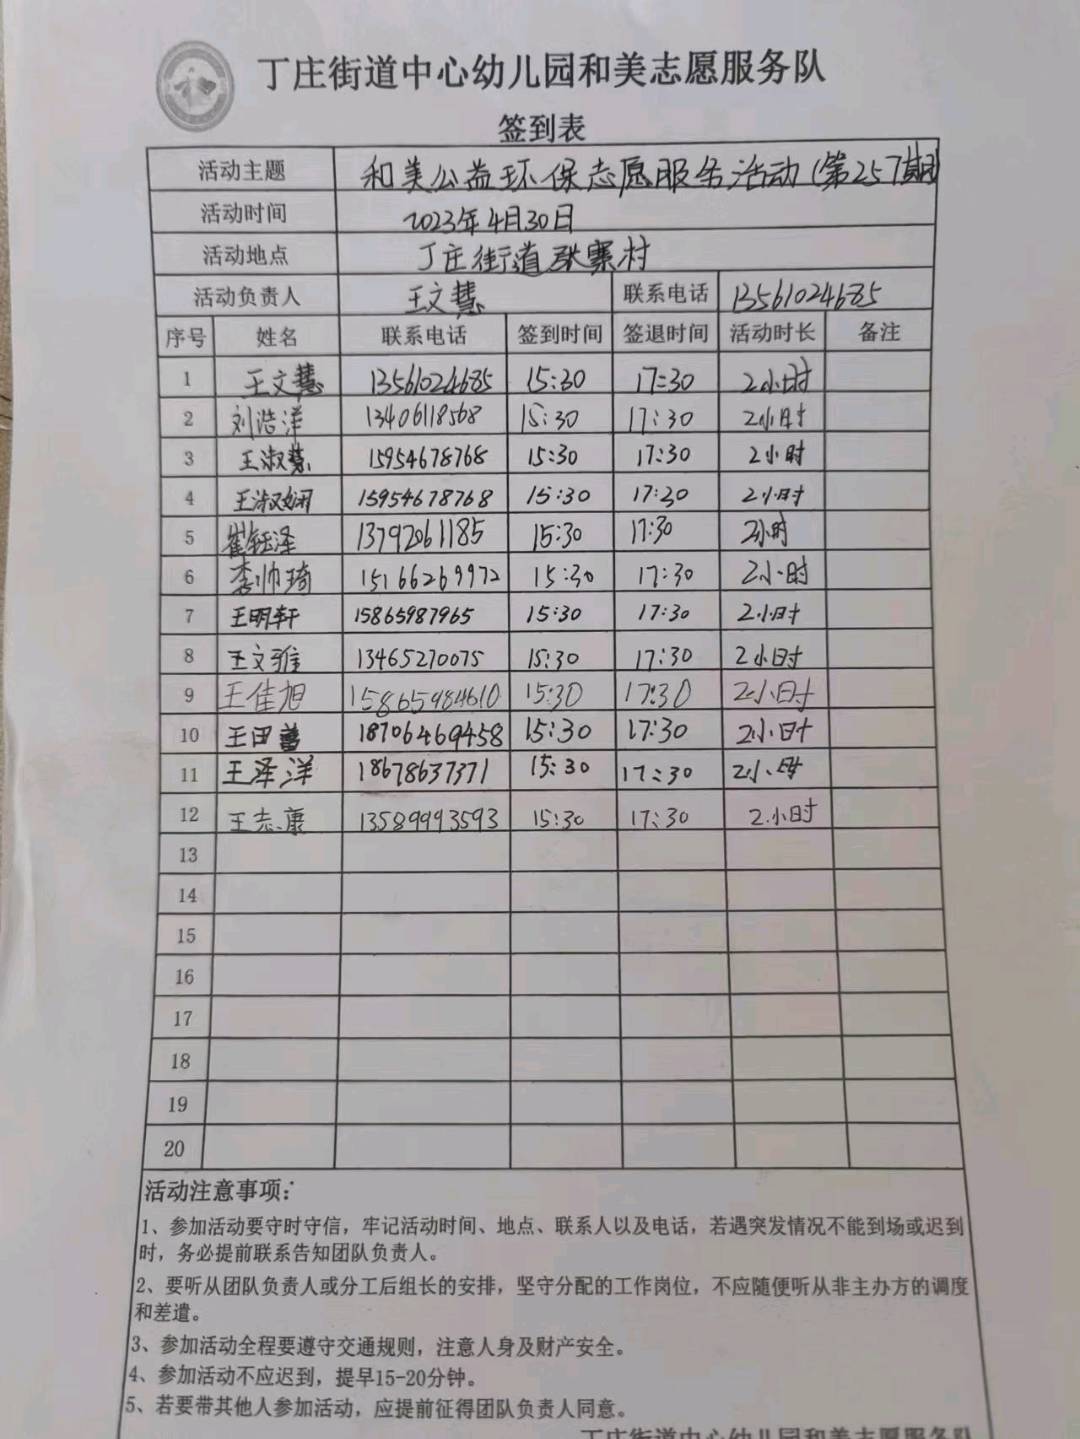 丁庄街道中心幼儿园和美志愿服务队
签到表
活动主题 和美公益环保志愿服务活动(第257期)
活动时间 2023年4月30日
活动地点 丁庄街道张寨村
活动负责人 王文慧 联系电话 13561024685
序号 姓名 联系电话 签到时间 签退时间 活动时长 备注
1 王文慧 13561024685 15:30 17:30 2小时
2 刘浩洋 13406118568 15:30 17:30 2小时
3 王淑慧 15954678768 15:30 17:30 2小时
4 王淑娴 15954678768 15:30 17:30 2小时
5 崔钰泽 13792061185 15:30 17:30 2小时
6 李帅琦 15166269972 15:30 17:30 2小时
7 王明轩 15865987965 15:30 17:30 2小时
8 王文雅 13465270075 15:30 17:30 2小时
9 王佳旭 15865984610 15:30 17:30 2小时
10 18706469458 15:30 17:30 2小时
11 王泽洋 18678637371 15:30 17:30 2小时
12 王志康 13589993593 15:30 17:30 2小时
13
14
15
16
17
18
19
20
活动注意事项:
1、参加活动要守时守信，牢记活动时间、地点、联系人以及电话，若遇突发情况不能到场或迟到
时，务必提前联系告知团队负责人。
2、要听从团队负责人或分工后组长的安排，坚守分配的工作岗位，不应随便听从非主办方的调度
和差遣。
3、参加活动全程要遵守交通规则，注意人身及财产安全。
4、参加活动不应迟到，提早15-20分钟。
5、若要带其他人参加活动，应提前征得团队负责人同意。
丁庄街道中心幼儿园和美志愿服务队